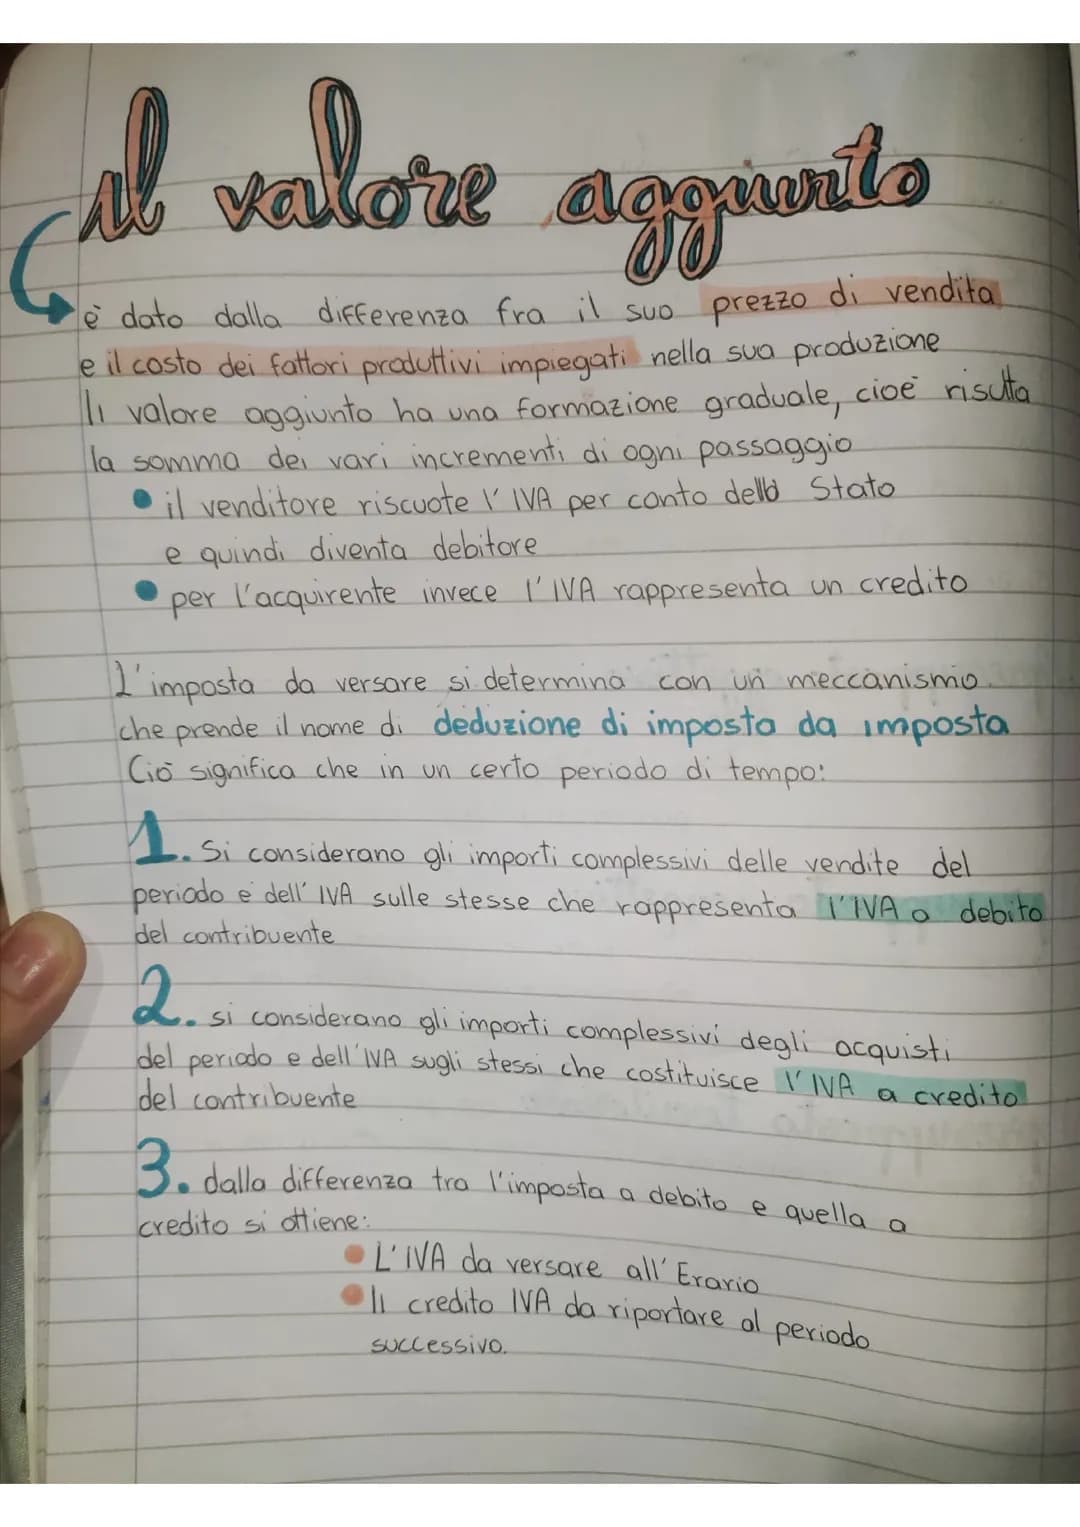 il valore aggiunto
è dato dalla differenza fra il suo prezzo di vendita
e il costo dei fattori produttivi impiegati nella sua produzione
Il valore aggiunto ha una formazione graduale, cioè risulta
la somma dei vari incrementi di ogni passaggio
• il venditore riscuote l'IVA per conto dello Stato
e quindi diventa debitore
• per l'acquirente invece l'IVA rappresenta un credito
L'imposta da versare si determina con un meccanismo
che prende il nome di deduzione di imposta da imposta
Ciò significa che in un certo periodo di tempo:
1. Si considerano gli importi complessivi delle vendite del
periodo e dell'IVA sulle stesse che rappresenta l'IVA a debito
del contribuente
2. si considerano gli importi complessivi degli acquisti
del periodo e dell'IVA sugli stessi che costituisce l'IVA a credito
del contribuente
3. dalla differenza tra l'imposta a debito e quella a
credito si ottiene:
• L'IVA da versare all'Erario
• Il credito IVA da riportare al periodo
successivo.